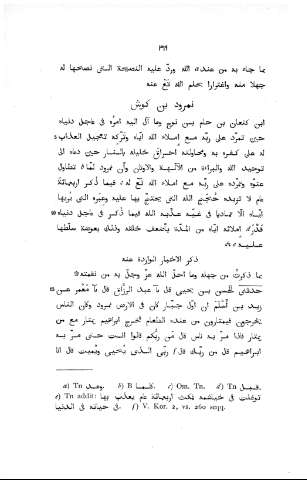 ٣١٩
بما جاء به من عند الله وردّ عليه النصيحة التى نصحها له
جهلا منه واغترارا بحلم الله تع عنه
نمرود بن كوش
ابن كنعان بن حام بن نوح وما آل اليه امره فى عاجل دنياه
حين تمرّد على ربّه مع املاء الله ايّاه وتركه تعجيل العذاب
له على كفره به ومحاولته احراق خليله بالنار حين دعاه الى
توحيد الله والبراءة من الآلهة والاوثان وأن نمرود لمّا تطاول
عتوّه وتمرّده على ربّه مع املاء الله تع له فيما ذكر اربعمائة
عام لا تزيده حجج الله التى يحتجّ بها عليه وعبره التى يريها
ايّاه الّا تماديا فى غيّه عذّبه الله فيما ذكر فى عاجل دنياه
قدر املائه ايّاه من المدّة بأضعف خلقه وذلك بعوضة سلّطها
عليه
ذكر الاخبار الواردة عنه
بما ذكرتُ من جهله وما احلّ الله عزّ وجلّ به من نقمته
حدثنى الحسن بن يحيى قال نآ عبد الرزاق قال نآ معمر عن
زيد بن اسلم ان اول جبّار كان فى الارض نمرود وكان الناس
يخرجون فيمتارون من عنده الطعام فخرج ابراهيم يمتار مع من
يمتار فاذا مرّ به ناس قال من ربّكم قالوا انت حتى مرّ به
ابراهيم قال من ربّك قال ربّى الذى يحيى ويميت قال انا
a) Tn وعند. b) B كلّما. c) Om. Tn. d) Tn قبل.
e) Tn addit:
فى حياته فى الدنيا. f) V. Kor. 2, vs. 260 sqq.